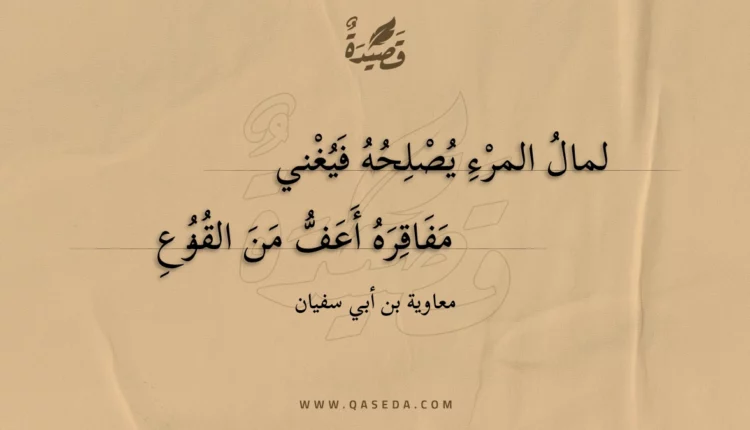 قَصِيْدَةٌ
لمالُ المرْءِ يُصْلِحُهُ فَيُغْني
مَفَاقِرَهُ أَعَفُّ مَنَ القُوُعِ
معاوية بن أبي سفيان
WWW.QASEDA.COM